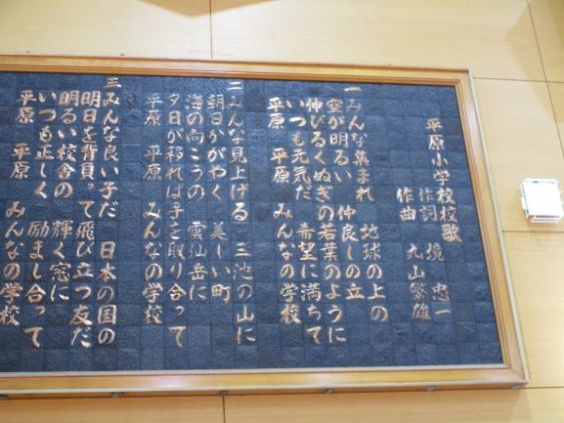 平原小学校校歌
作詞 境 忠一
作曲 丸山繁雄
一 みんな集まれ 地球の上の
空が明るい 仲良しの立
伸びるくぬぎの若葉のように
いつも元気だ 希望に満ちて
平原 平原 みんなの学校
二 みんな見上げる 三池の山に
朝日かがやく 美しい町
海の向こうの 雲仙岳に
夕日が移れば手を取り合って
平原 平原 みんなの学校
三 みんな良い子だ 日本の国の
明日を背負って飛び立つ友だ
明るい校舎の 輝く窓に
いつも正しく 励まし合って
平原 平原 みんなの学校